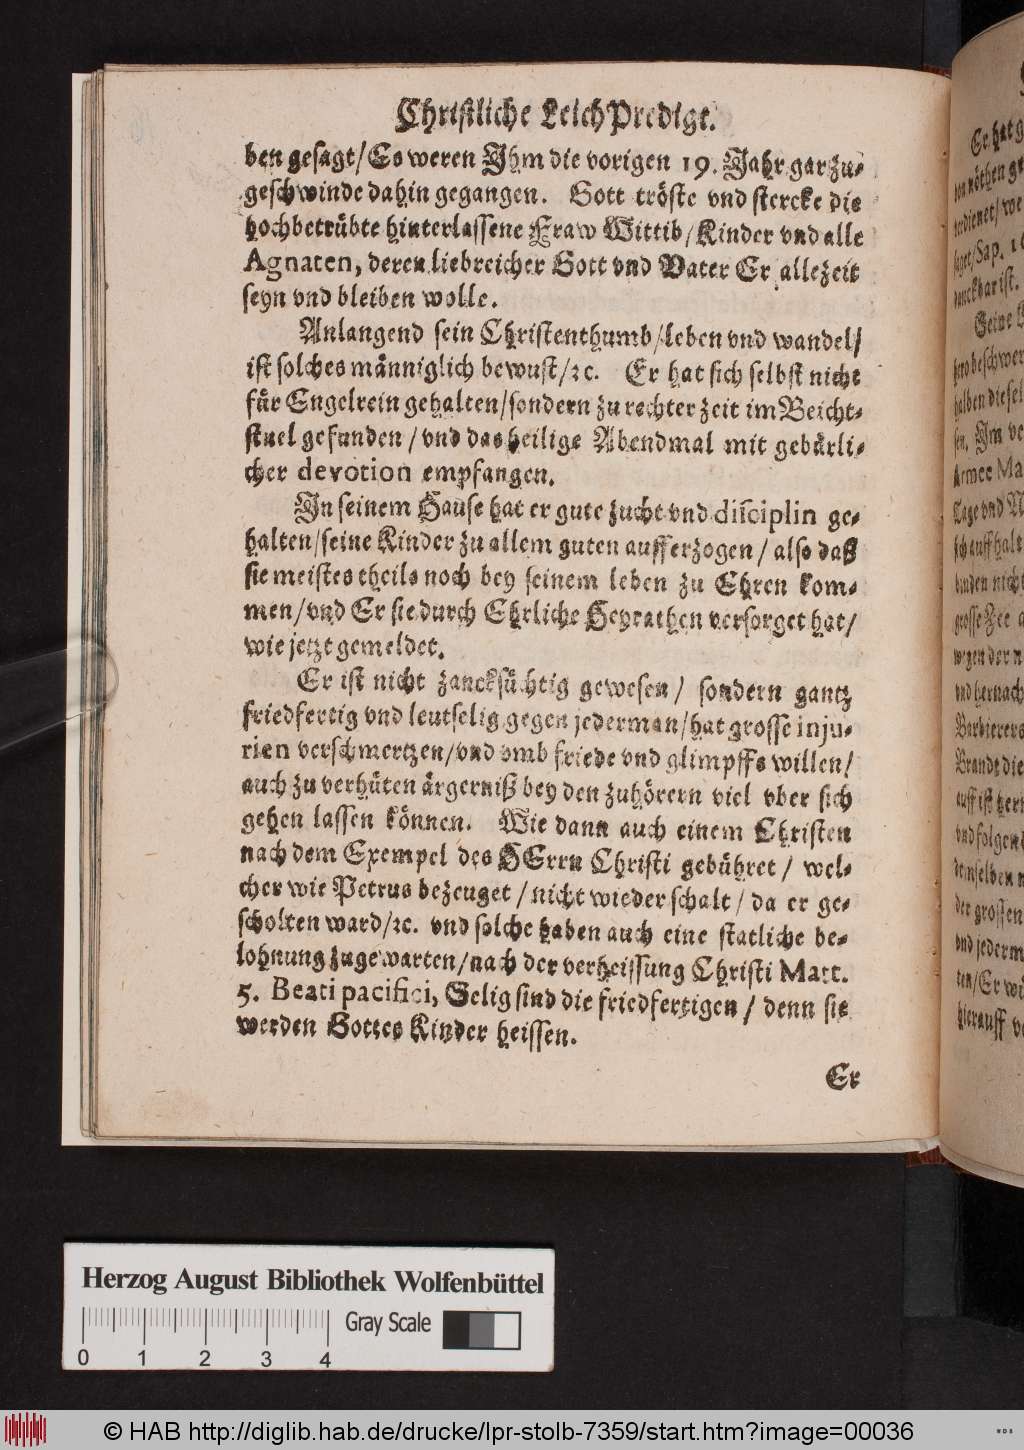 Christliche LeichPredigt.
ben gesagt/Es weren Ihm die vorigen 19. Jahr gar zu-
geschwinde dahin gegangen. Gott tröste vnd stercke die
hochbetrübte hinterlassene Fraw Wittib/Kinder vnd alle
Agnaten, deren liebreicher Gott vnd Vater Er allezeit
seyn vnd bleiben wolle.
Anlangend sein Christenthumb/leben vnd wandel/
ist solches männiglich bewust/ꝛc. Er hat sich selbst nicht
für Engelrein gehalten/sondern zu rechter zeit im Beicht-
stuel gefunden/vnd das heilige Abendmal mit gebürli-
cher devotion empfangen.
In seinem Hause hat er gute zucht vnd disciplin ge-
halten/seine Kinder zu allem guten aufferzogen/also daß
sie meistes theils noch bey seinem leben zu Ehren kom-
men/vnd Er sie durch Ehrliche Heyrathen versorget hat/
wie jetzt gemeldet.
Er ist nicht zancksüchtig gewesen/ sondern gantz
friedfertig vnd leutselig gegen jederman/hat grosse inju-
rien verschmertzen/vnd vmb friede vnd glimpffs willen/
auch zu verhüten ärgerniß bey den zuhörern viel vber sich
gehen lassen können. Wie dann auch einem Christen
nach dem Exempel des HErrn Christi gebühret/ wel-
cher wie Petrus bezeuget/nicht wieder schalt/da er ge-
scholten ward/ꝛc. vnd solche haben auch eine statliche be-
lohnung zugewarten/nach der verheissung Christi Matt.
5. Beati pacifici, Selig sind die friedfertigen/ denn sie
werden Gottes Kinder heissen.
Er
Er hat
den nöthen
verdienet/
saget/Sap. 16
danckbar ist.
Seine
halben diesel
sen. Im
Armee
Tage vnd
sich auffhalt
binden nicht
grosse
wegen der
vnd hernach
Barbierers
Brandt die
auff ist
vnd folgend
demselben
der grossen
vnd jederm
ten/Er
hierauff
Herzog August Bibliothek Wolfenbüttel
Gray Scale
0 1 2 3 4
© HAB http://diglib.hab.de/drucke/lpr-stolb-7359/start.htm?image=00036